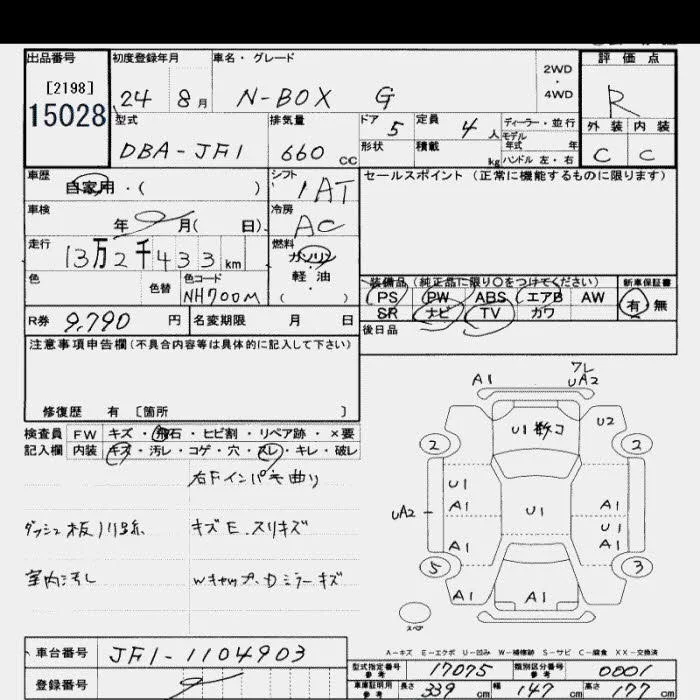 出品番号 初度登録年月 車名・グレード 評価点
[2198] 2WD
・
15028 24 8月 N-BOX G 4WD R
型式 排気量 ドア 5 定員 4人 ディーラー・並行 外装 内装
DBA-JF1 660cc 形状 積載 kg モデル年式 年 C C
ハンドル 左・右
車歴 シフト セールスポイント(正常に機能するものに限ります)
自家用・( ) 1AT
車検 冷房
年 月( 日) AC
走行 燃料
13万2千433km ガソリン
色 色替 色コード 軽・油 装備品(純正品に限り○をつけてください) 新車保証書
NH700M ( ) PS PW ABS エアB AW 有 無
R券 9,790円 名変期限 月 日 SR ナビ TV カワ
注意事項申告欄(不具合内容等は具体的に記入して下さい) 後日品
修復歴 有 [箇所 ]
検査員 FW キズ・飛石・ヒビ割・リペア跡・×要
記入欄 内装 キズ・汚レ・コゲ・穴・スレ・キレ・破レ
右Fインパネ曲り
キズE.スリキズ
室内汚し Wキャップ.Dミラーキズ
A1 フレ UA2
U1 U2
2 2
U1
A1 U1 A1
UA2 U1
A1 A1
5 3
A1 A1 A1
スペア
A-キズ E-エクボ U-凹み W-補修跡 S-サビ C-腐食 XX-交換済
車台番号 JF1-1104903
登録番号
型式指定番号 参考 17075 類別区分番号 参考 0001
車庫証明用 参考 長さ 339cm 幅 147cm 高さ 177cm